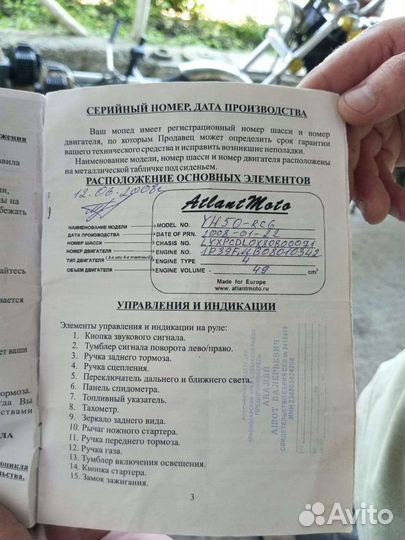 СЕРИЙНЫЙ НОМЕР, ДАТА ПРОИЗВОДСТВА
Ваш мопед имеет регистрационный номер шасси и номер
двигателя, по которым Продавец может определить срок гарантии
вашего технического средства и исправить возникшие неполадки.
Наименование модели, номер шасси и номер двигателя расположены
на металлической табличке под сиденьем.
РАСПОЛОЖЕНИЕ ОСНОВНЫХ ЭЛЕМЕНТОВ
12.06.2008г.
AtlantMoto
НАИМЕНОВАНИЕ МОДЕЛИ MODEL NO. YH50-RC6
ДАТА ПРОИЗВОДСТВА DATE OF PRN.
НОМЕР ШАССИ CHASIS NO.
НОМЕР ДВИГАТЕЛЯ ENGINE NO.
ТИП ДВИГАТЕЛЯ (2-х или 4-х тактный) ENGINE TYPE 4
ОБЪЕМ ДВИГАТЕЛЯ ENGINE VOLUME 49 cm³
Made for Europe
www.atlantmoto.ru
УПРАВЛЕНИЯ И ИНДИКАЦИИ
Элементы управления и индикации на руле:
1. Кнопка звукового сигнала.
2. Тумблер сигнала поворота лево/право.
3. Ручка заднего тормоза.
4. Ручка сцепления.
5. Переключатель дальнего и ближнего света.
6. Панель спидометра.
7. Топливный указатель.
8. Тахометр.
9. Зеркало заднего вида.
10. Рычаг ножного стартера.
11. Ручка переднего тормоза.
12. Ручка газа.
13. Тумблер включения освещения.
14. Кнопка стартера.
15. Замок зажигания.
АШОТ ВАЛЕРЬЕВИЧ
3
Avito